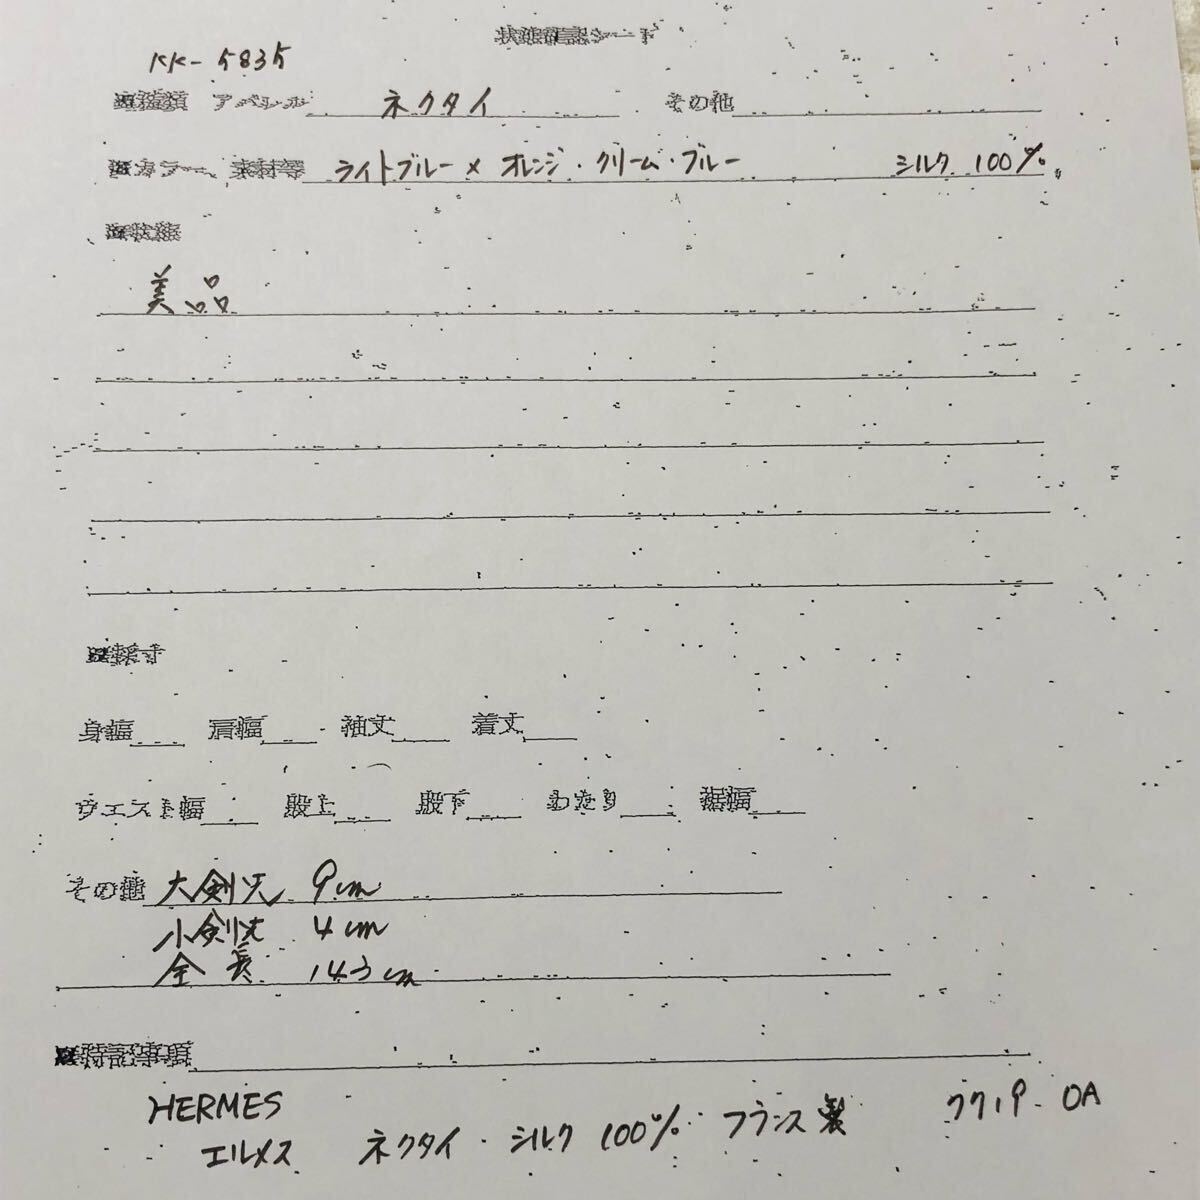 状態確認シート
KK-5835
■種類 アパレル ネクタイ その他
■カラー、素材等 ライトブルー × オレンジ・クリーム・ブルー シルク 100%
■状態
美品
■採寸
身幅 肩幅 袖丈 着丈
ウエスト幅 股上 股下 わたり 裾幅
その他 大剣先 9cm
小剣先 4cm
全長 143cm
■特記事項
HERMES
エルメス ネクタイ・シルク 100% フランス製 OA